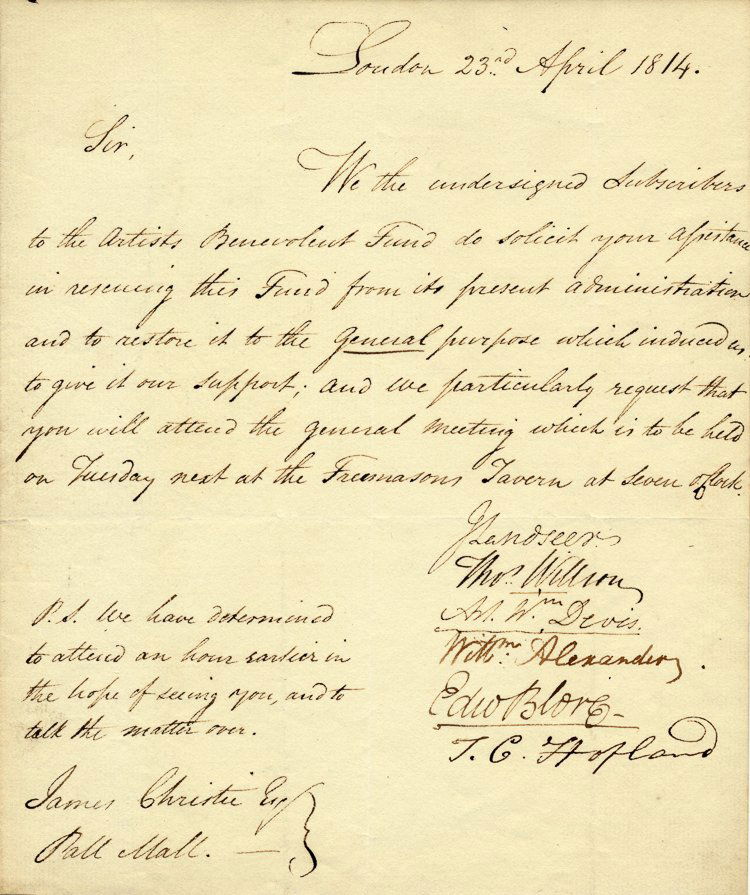 London 23rd April 1814.
Sir,
We the undersigned Subscribers
to the Artists Benevolent Fund do solicit your assistance
in rescuing this Fund from its present administration
and to restore it to the General purpose which induced us
to give it our support; and we particularly request that
you will attend the general meeting which is to be held
on Tuesday next at the Freemasons Tavern at seven oClock.
J Landseer.
Thos. Willson
Art. Wm. Devis.
Willm. Alexander.
Edw Blore
T. C. Hofland
P.S. We have determined
to attend an hour earlier in
the hope of seeing you, and to
talk the matter over.
James Christie Esq
Pall Mall. —